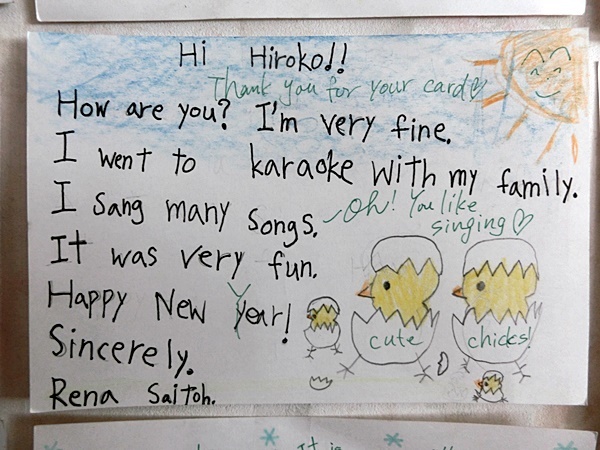 Hi Hiroko!!
Thank you for your card♡
How are you? I'm very fine.
I went to karaoke with my family.
I sang many songs.
Oh! You like
singing♡
It was very fun.
Happy New Year!
cute chicks!
Sincerely.
Rena Saitoh.
It is